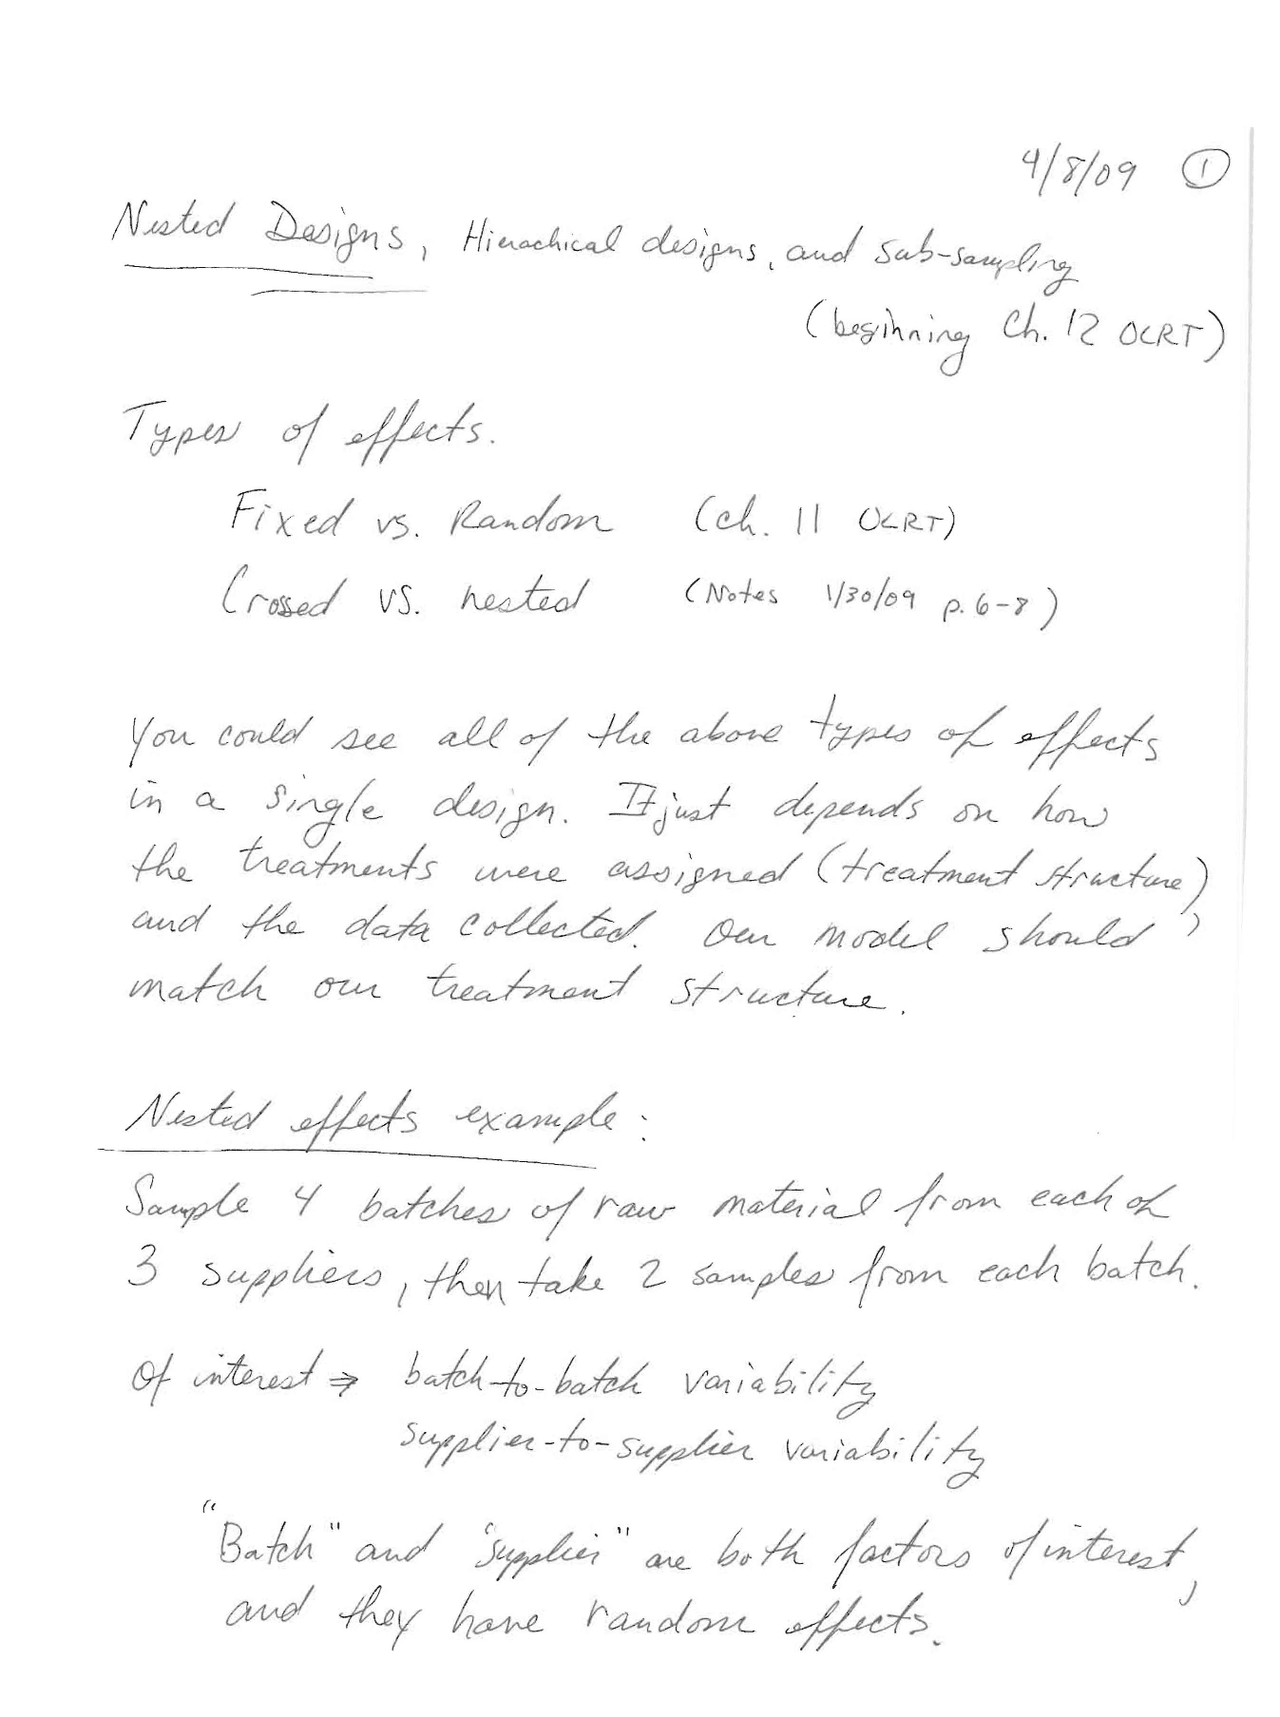 4/8/09 ①
Nested Designs, Hierachical designs, and sub-sampling
(beginning Ch. 12 OLRT)
Types of effects.
Fixed vs. Random (ch. 11 OLRT)
Crossed vs. nested (Notes 1/30/09 p. 6-8)
You could see all of the above types of effects
in a single design. It just depends on how
the treatments were assigned (treatment structure),
and the data collected. Our model should
match our treatment structure.
Nested effects example:
Sample 4 batches of raw material from each of
3 suppliers, then take 2 samples from each batch.
Of interest ⇒ batch-to-batch variability
supplier-to-supplier variability
"Batch" and "supplier" are both factors of interest,
and they have random effects.